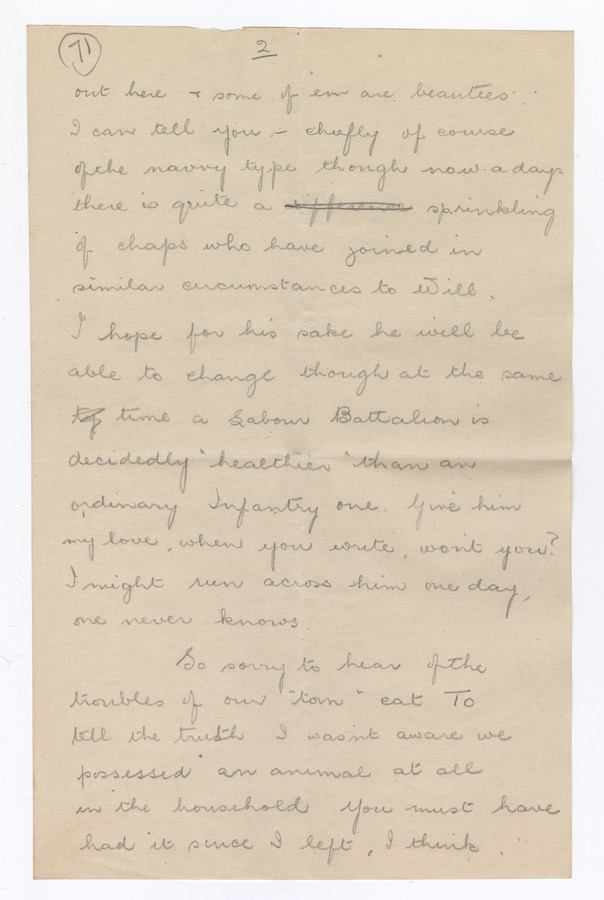 71
2
out here + some of em are beauties.
I can tell you – chefly of course
of the navvy type though now a days
there is quite a difference sprinkling
of chaps who have joined in
similar circumstances to Will.
I hope for his sake he will be
able to change though at the same
time a Labour Battalion is
decidedly "healthier" than an
ordinary Infantry one. Give him
my love, when you write, wont you?
I might run across him one day,
one never knows.
So sorry to hear of the
troubles of our "tom" cat To
tell the truth I wasn't aware we
possessed an animal at all
in the household You must have
had it since I left, I think.